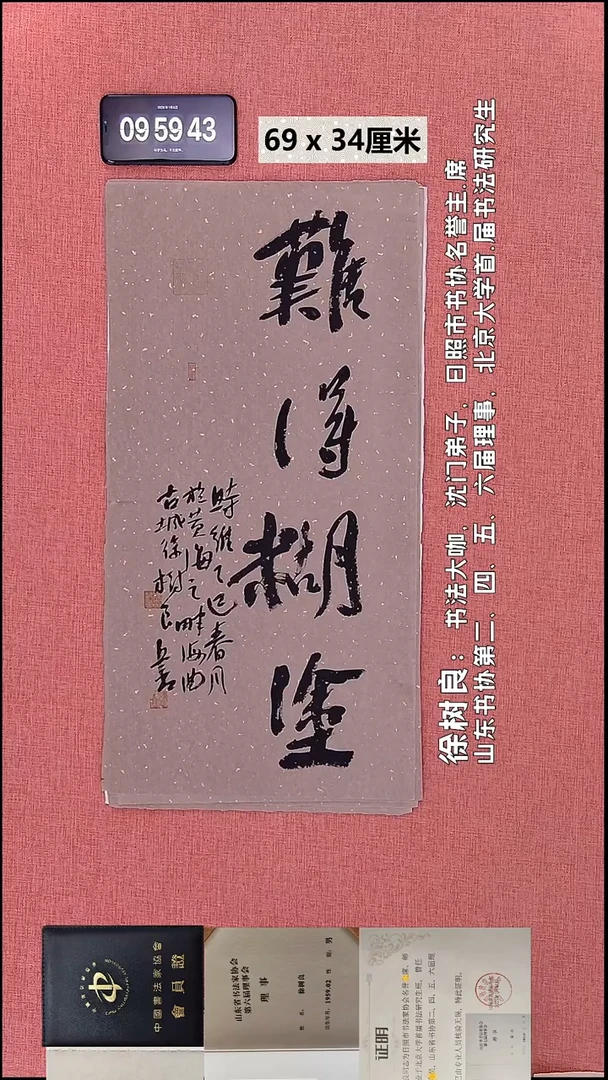 09 59 43
69 x 34厘米
難得糊塗
時維乙巳春月
於黄海之畔海曲
古城徐樹良書
徐树良：书法大咖，沈门弟子，日照市书协名誉主.席
山东书协第二、四、五、六届理事，北京大学首.届书法研究生
中國書法家協會
會員證
山东省书法家协会
第六届理事会
理事
徐树良
1959.02
男
证明